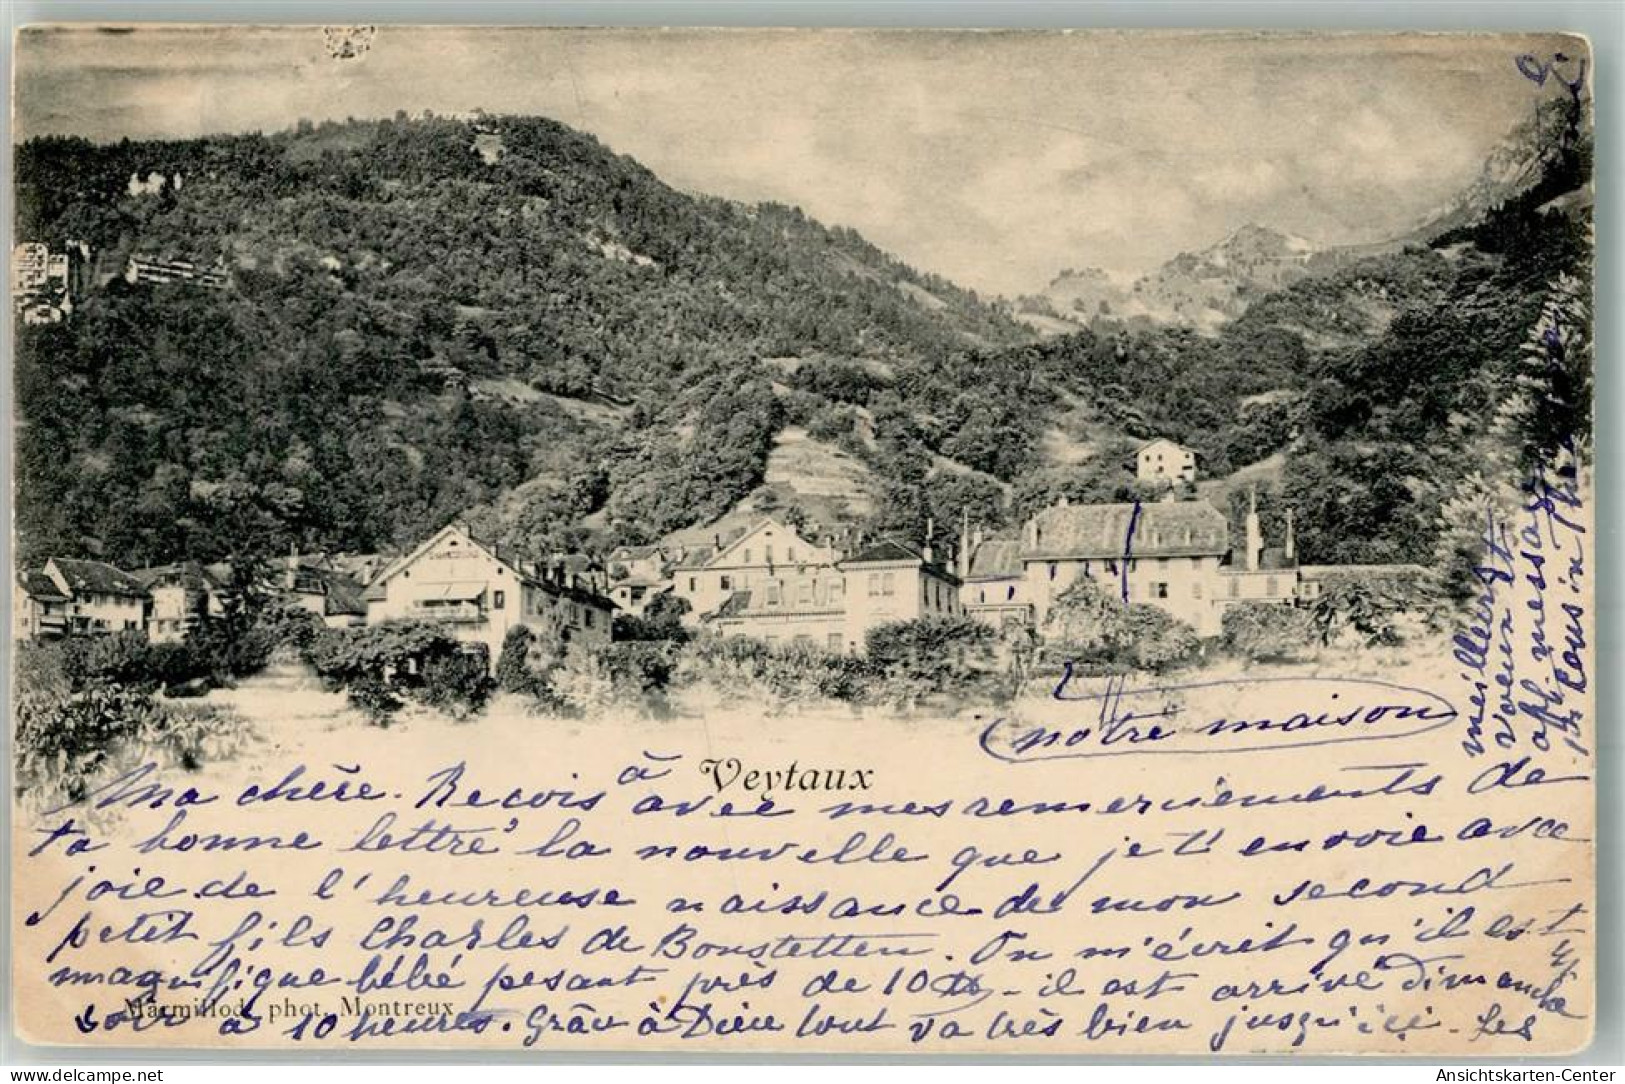 notre maison
Veytaux
Ma chère. Reçois à avec mes remerciements de
ta bonne lettre la nouvelle que je t'envoie avec
joie de l'heureuse naissance de mon second
petit fils Charles de Bonstetten. On m'écrit qu'il est
magnifique bébé pesant près de 10 ℔ - il est arrivé dimanche
soir à 10 heures. Grâce à Dieu tout va très bien jusqu'ici. Les
Marmillod, phot. Montreux
meilleurs
voeux et
aff. messages
Ansichtskarten-Center
www.delcampe.net